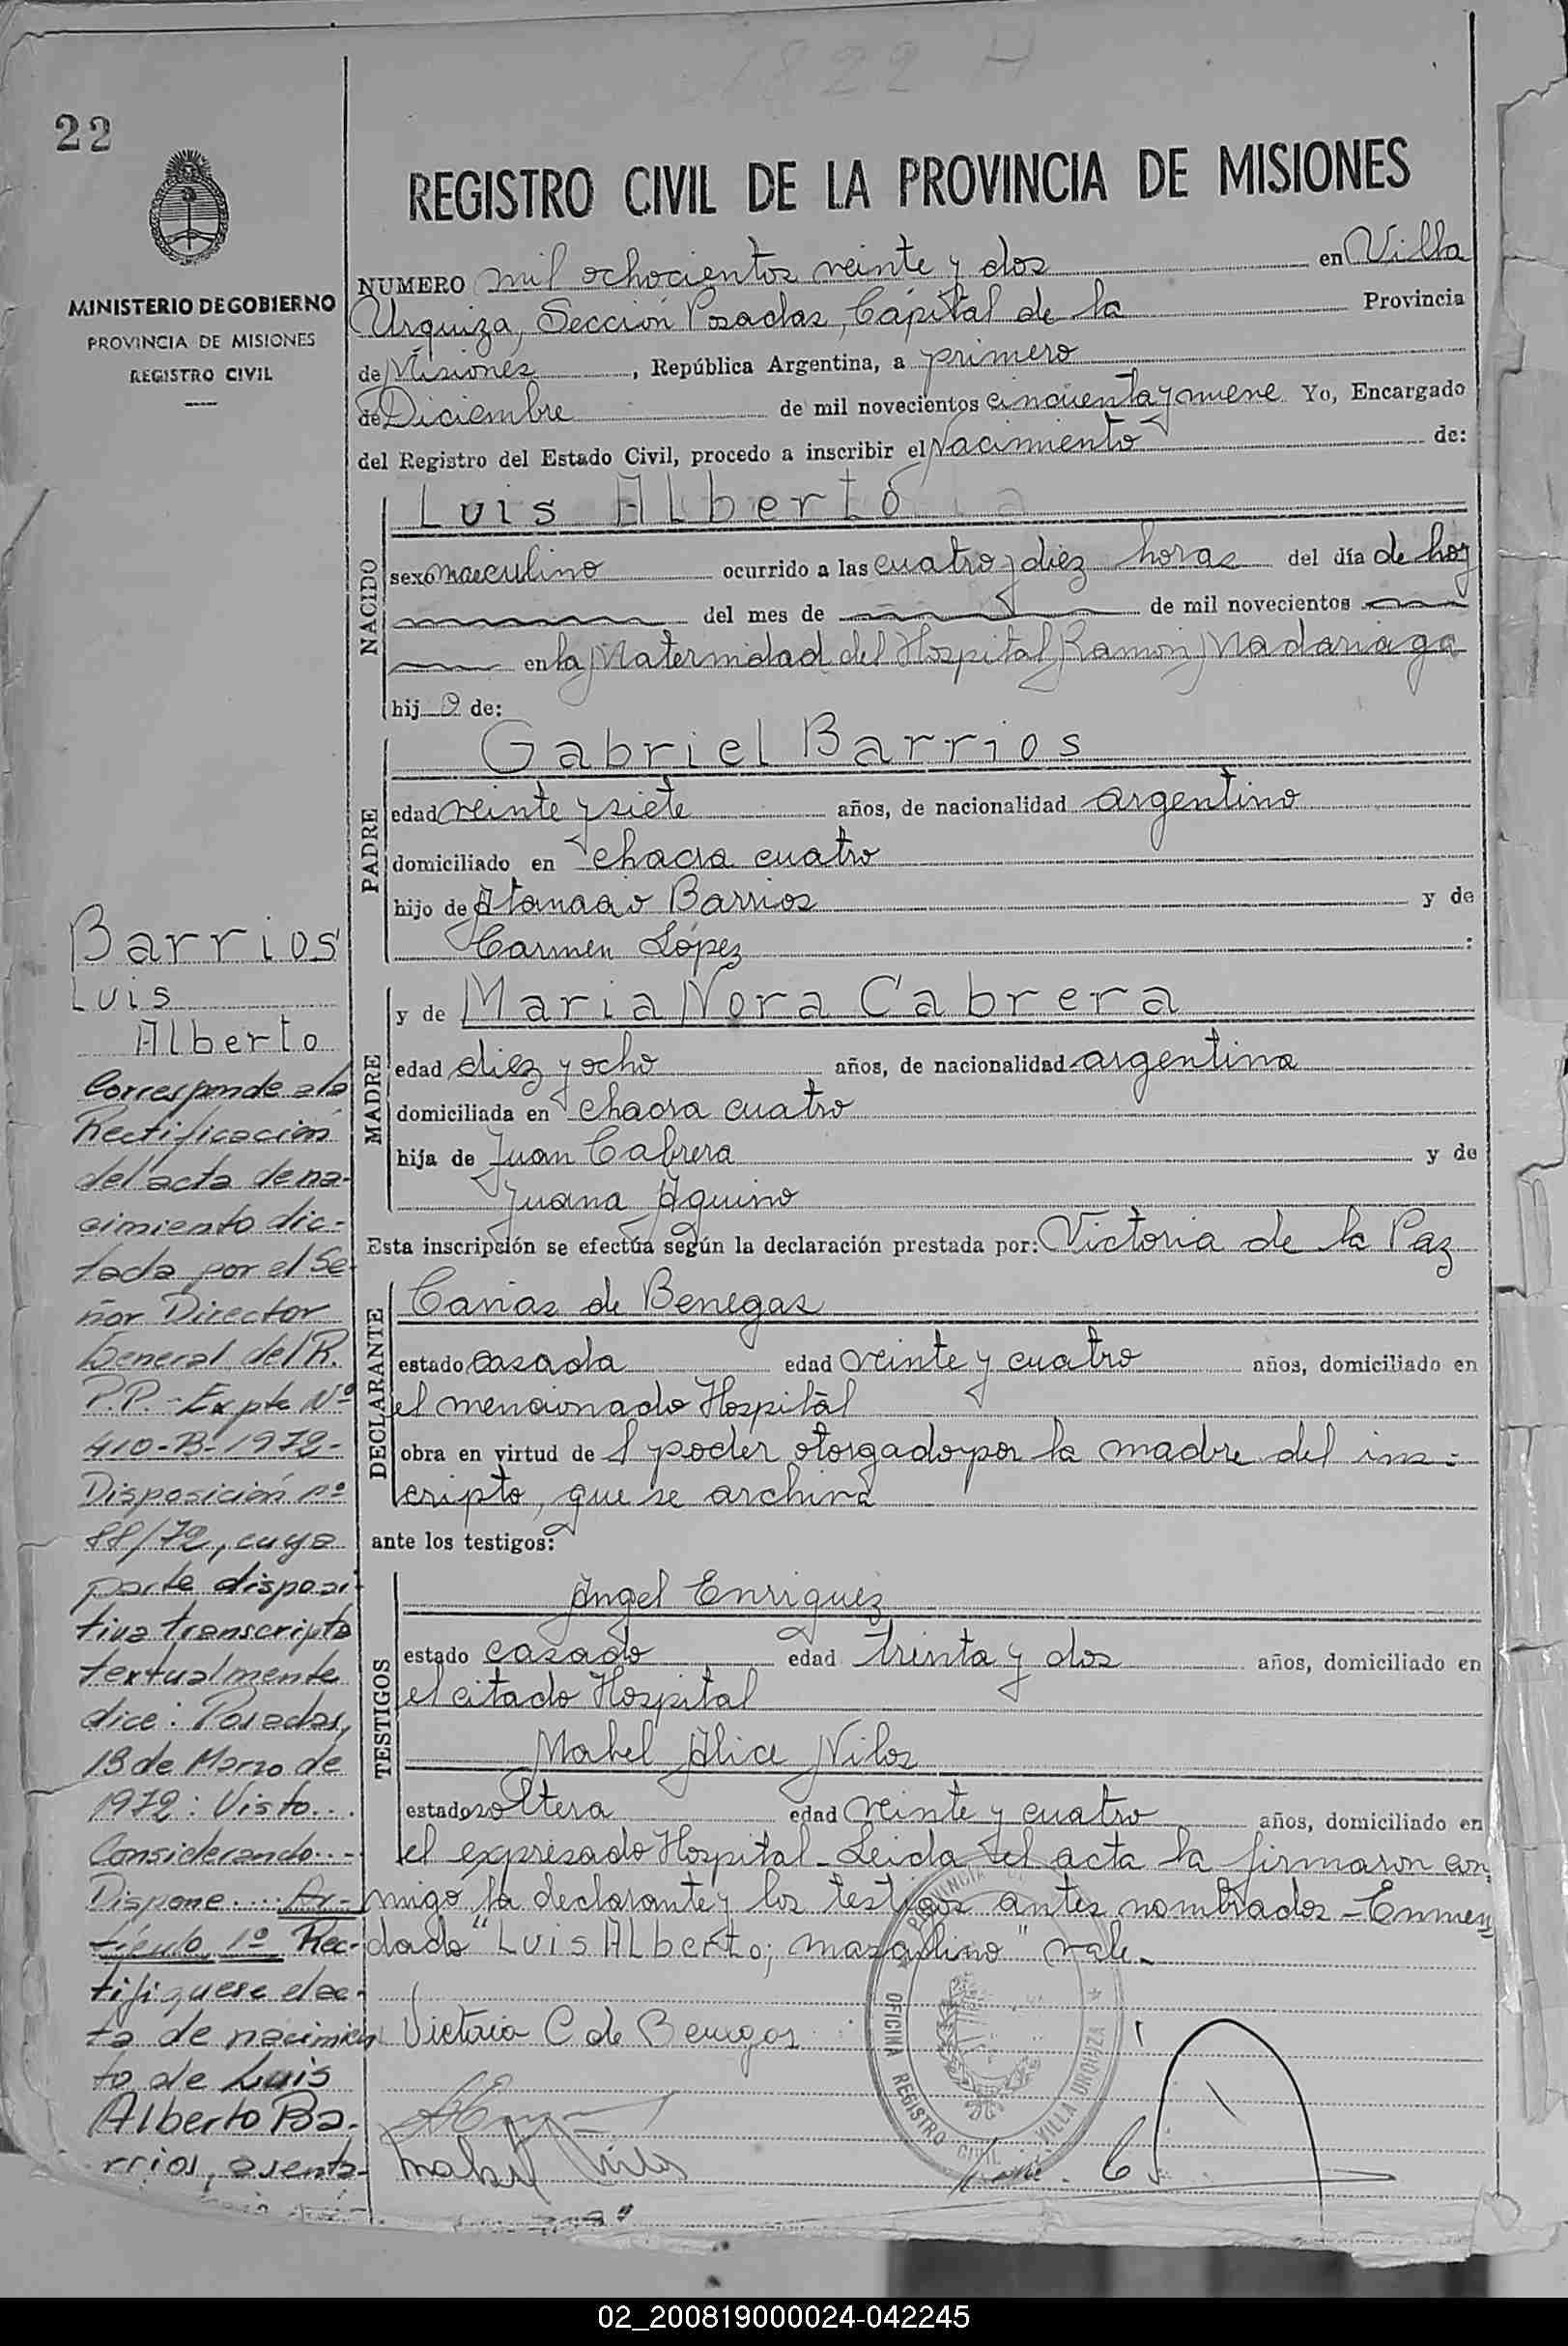 1822 H
22
MINISTERIO DE GOBIERNO
PROVINCIA DE MISIONES
REGISTRO CIVIL
REGISTRO CIVIL DE LA PROVINCIA DE MISIONES
NUMERO mil ochocientos veinte y dos en Villa
Urquiza, Sección Posadas, Cápital de la Provincia
de Misiones, República Argentina, a primero
de Diciembre de mil novecientos cincuenta y nueve Yo, Encargado
del Registro del Estado Civil, procedo a inscribir el Nacimiento de:
NACIDO
Luis Alberto
sexo masculino ocurrido a las cuatro y diez horas del día de hoy
del mes de de mil novecientos
en la Maternidad del Hospital Ramon Madariaga
hijo de:
PADRE
Gabriel Barrios
edad veinte y siete años, de nacionalidad argentino
domiciliado en chacra cuatro
hijo de Atanacio Barrios y de
Carmen López :
MADRE
y de Maria Nora Cabrera
edad diez y ocho años, de nacionalidad argentina
domiciliada en chacra cuatro
hija de Juan Cabrera y de
Juana Aquino
Esta inscripción se efectúa según la declaración prestada por: Victoria de la Paz
DECLARANTE
Canias de Benegas
estado casada edad veinte y cuatro años, domiciliado en
el mencionado Hospital
obra en virtud de l poder otorgado por la madre del ins-
cripto, que se archiva
ante los testigos:
TESTIGOS
Angel Enriquez
estado casado edad treinta y dos años, domiciliado en
el citado Hospital
Mabel Alice Nilos
estado soltera edad veinte y cuatro años, domiciliado en
el expresado Hospital - Leida el acta la firmaron con
migo la declarante y los testigos antes nombrados - Enmen
dado "Luis Alberto; masculino" vale -
Victoria C de Benegas
OFICINA REGISTRO CIVIL VILLA URQUIZA
Barrios
Luis
Alberto
Corresponde a la
Rectificación
del acta de na-
cimiento dic-
tada por el Se-
ñor Director
General del R.
P.P. - Expte Nº
410-B-1972-
Disposición nº
88/72, cuya
parte disposi-
tiva transcripta
textualmente
dice: Posadas,
13 de Marzo de
1972: Visto...
Considerando...-
Dispone.... Ar-
tículo 1º Rec-
tifiquese el ac-
ta de nacimien
to de Luis
Alberto Ba-
rrios, asenta-
02_200819000024-042245